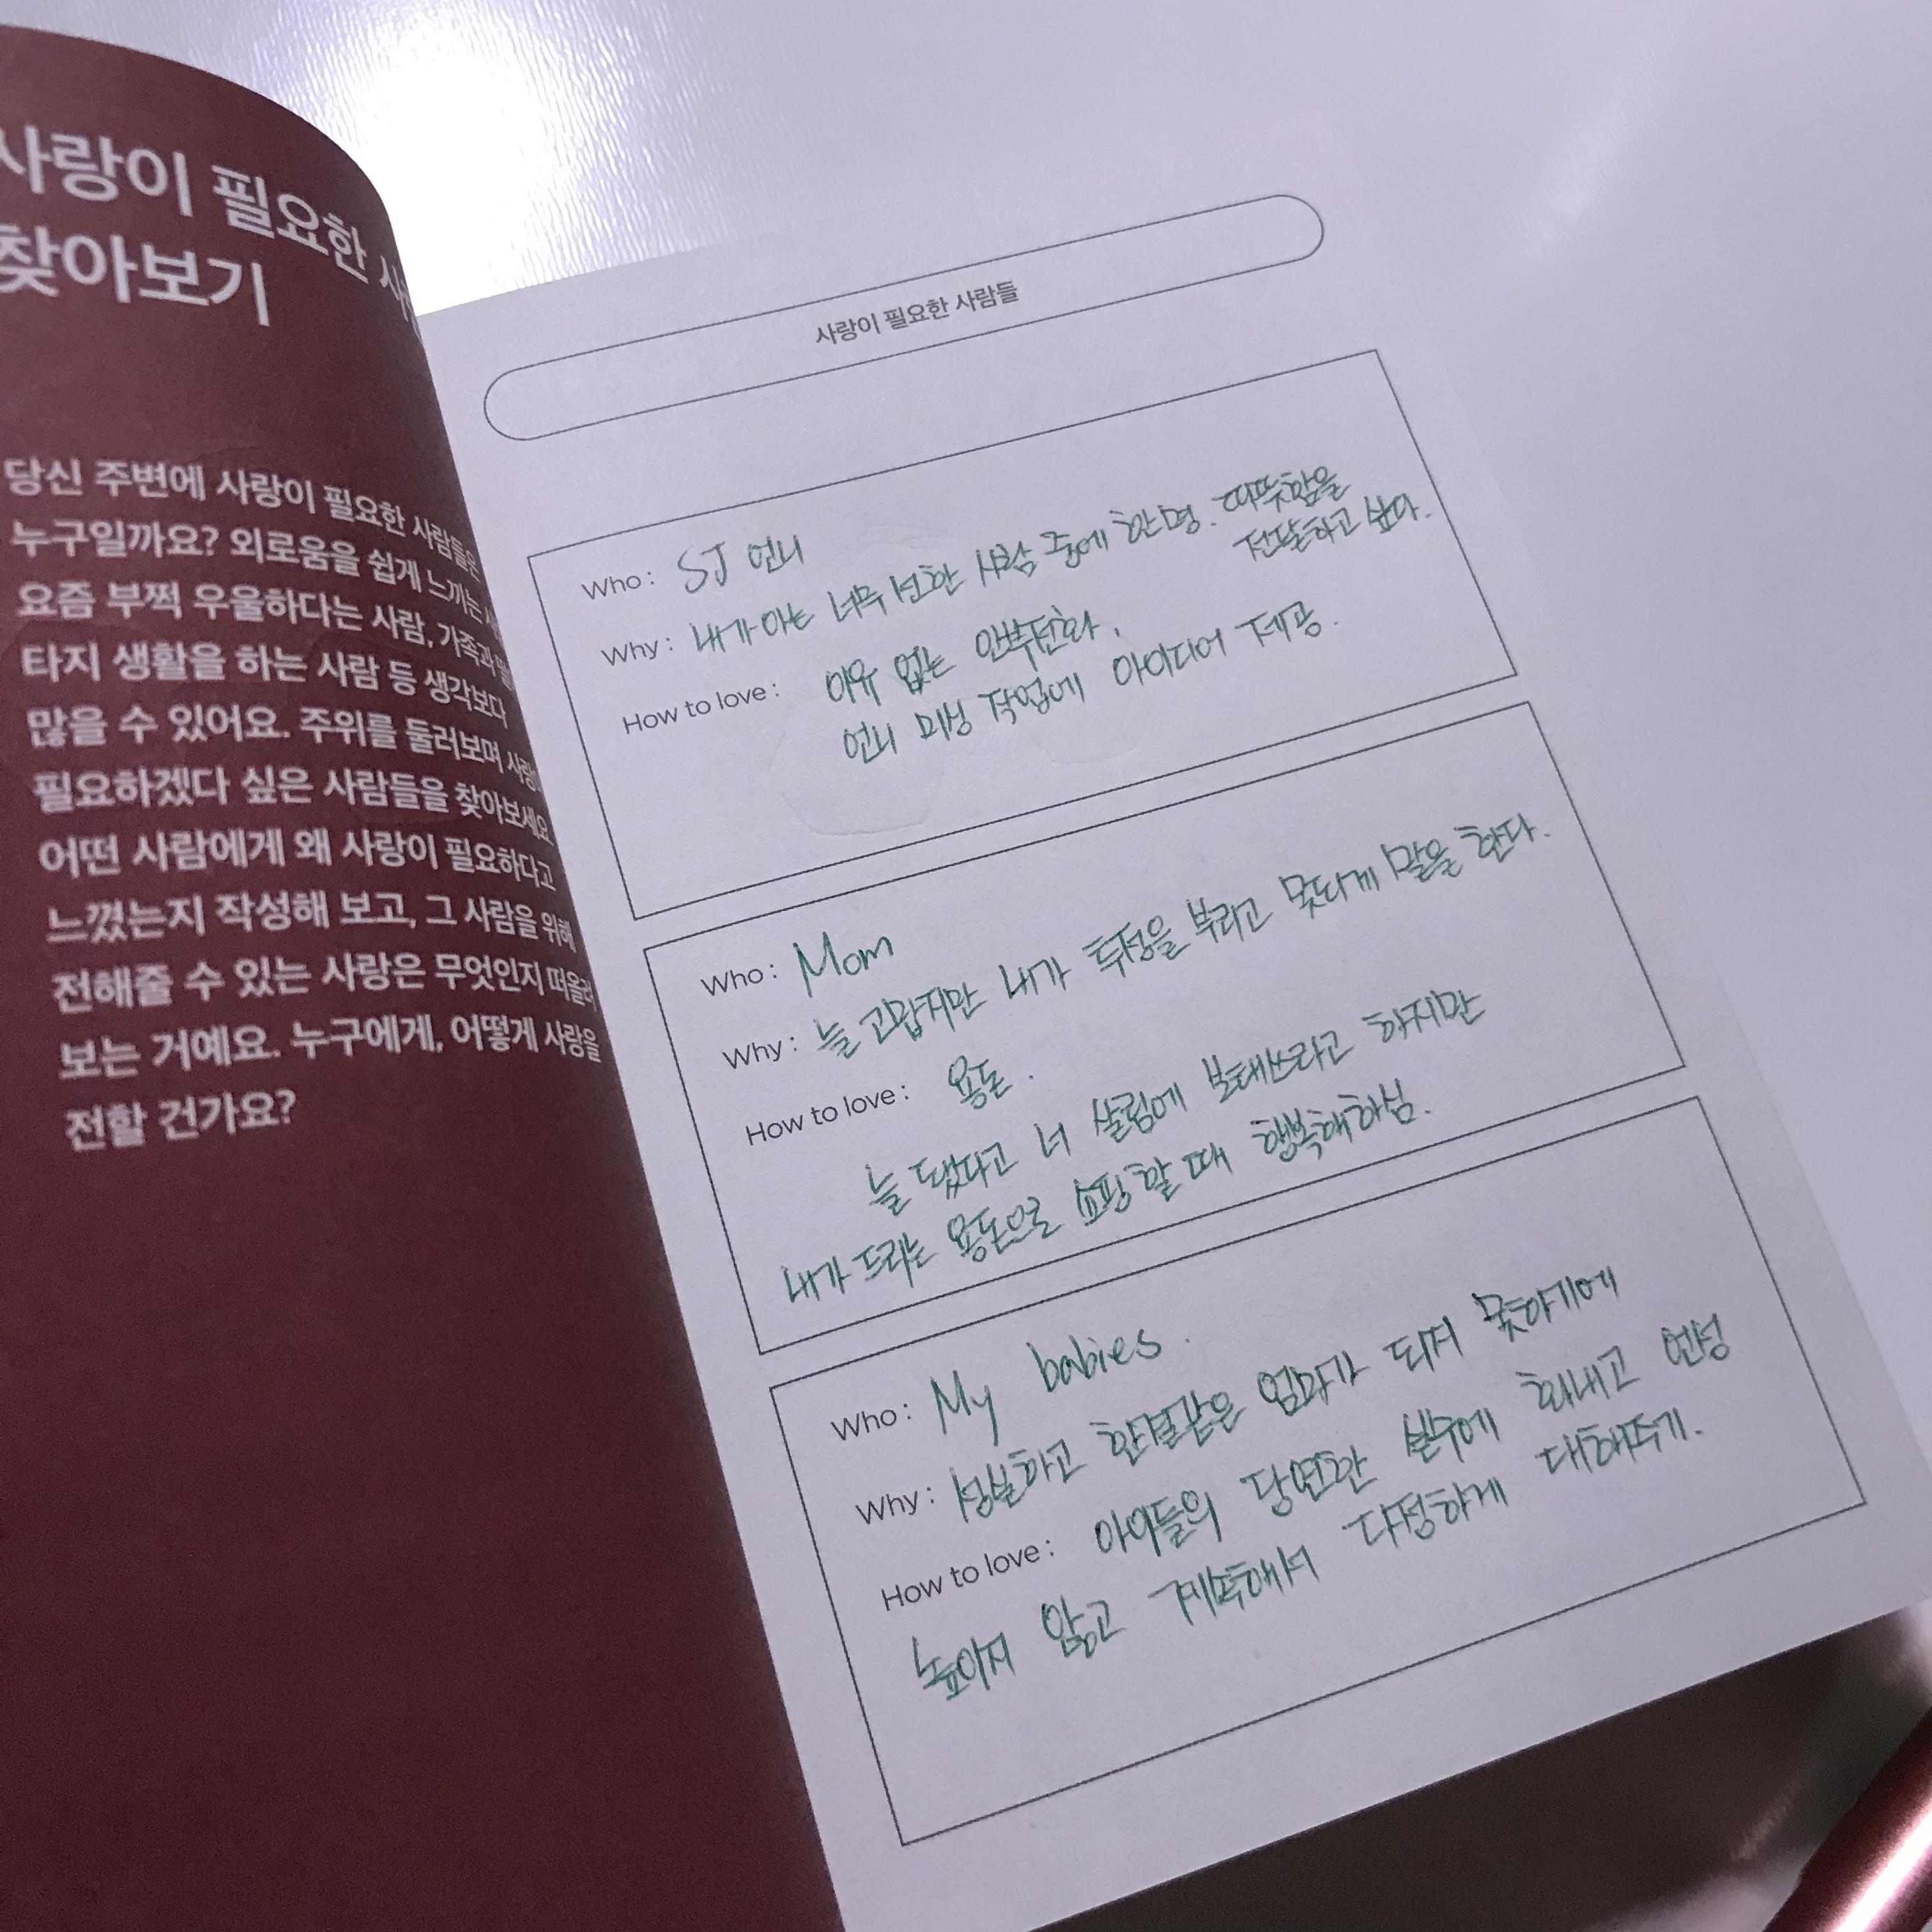 사랑이 필요한
찾아보기
당신 주변에 사랑이 필요한 사람들은
누구일까요? 외로움을 쉽게 느끼는
요즘 부쩍 우울하다는 사람, 가족과
타지 생활을 하는 사람 등 생각보다
많을 수 있어요. 주위를 둘러보며
필요하겠다 싶은 사람들을 찾아보세요.
어떤 사람에게 왜 사랑이 필요하다고
느꼈는지 작성해 보고, 그 사람을 위해
전해줄 수 있는 사랑은 무엇인지 떠올려
보는 거예요. 누구에게, 어떻게 사랑을
전할 건가요?
사랑이 필요한 사람들
Who : SJ 언니
Why : 내가 아는 너무 선한 사람 중에 한명. 따뜻함을
전달하고 싶다.
How to love : 이유 없는 안부전화.
언니 미싱 작업에 아이디어 제공.
Who : Mom
Why : 늘 고맙지만 내가 투정을 부리고 못되게 말을 한다.
How to love : 용돈.
늘 됐다고 너 살림에 보태쓰라고 하지만
내가 드리는 용돈으로 쇼핑할 때 행복해하심.
Who : My babies.
Why : 성실하고 한결같은 엄마가 되지 못하기에
How to love : 아이들의 당연한 실수에 화내고 언성
높이지 않고 계속해서 다정하게 대해주기.